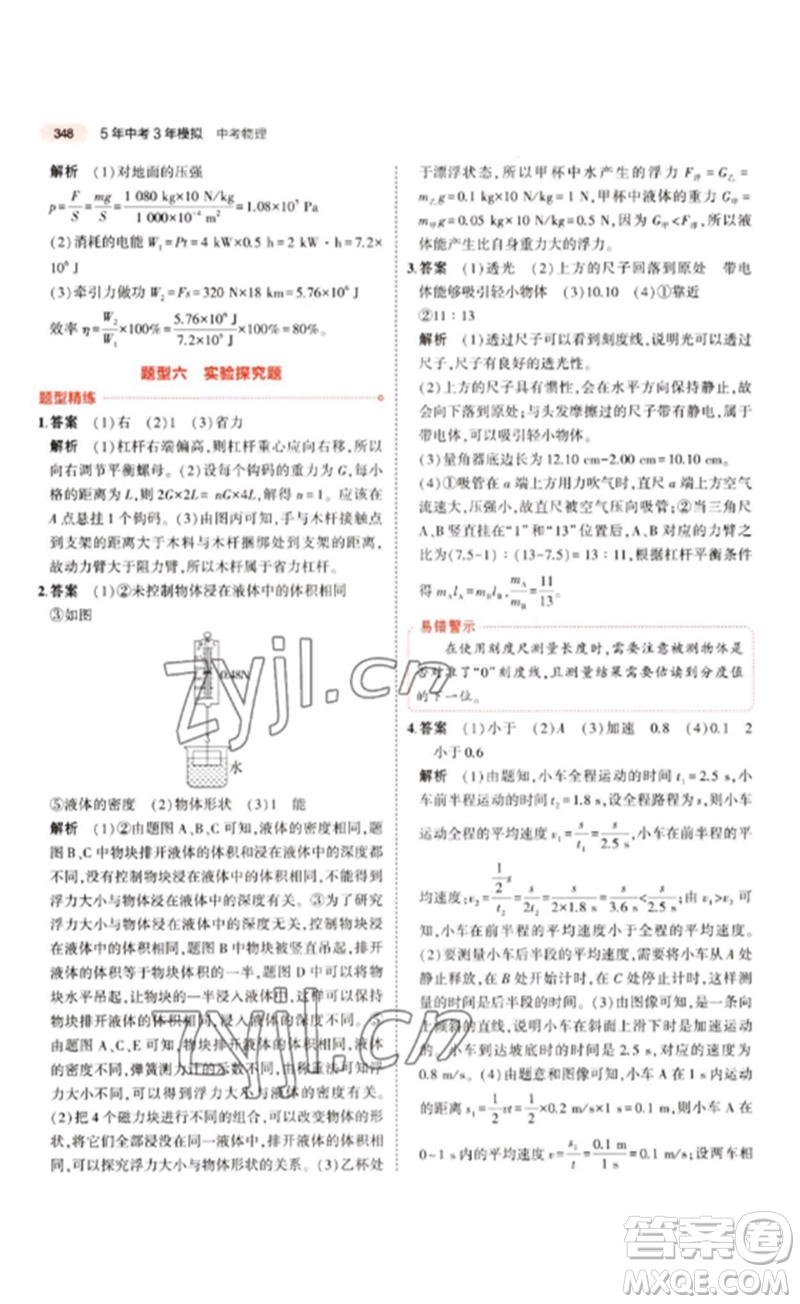 348 5年中考3年模拟 中考物理
解析 (1)对地面的压强
p=F/S=mg/S=1 080 kg×10 N/kg/1 000×10⁻⁴ m²=1.08×10⁵ Pa
(2)消耗的电能 W₁=Pt=4 kW×0.5 h=2 kW·h=7.2×
10⁶ J
(3)牵引力做功 W₂=Fs=320 N×18 km=5.76×10⁶ J
效率 η=W₂/W₁×100%=5.76×10⁶ J/7.2×10⁶ J×100%=80%。
题型六 实验探究题
题型精练
1.答案 (1)右 (2)1 (3)省力
解析 (1)杠杆右端偏高,则杠杆重心应向右移,所以
向右调节平衡螺母。(2)设每个钩码的重力为 G,每小
格的距离为 L,则有 2G×2L= nG×4L,解得 n=1。所以在
A 点悬挂 1 个钩码。(3)由图丙可知,手与木杆接触点
到支架的距离大于木料与木杆捆绑处到支架的距离,
故动力臂大于阻力臂,所以此装置属于省力杠杆。
2.答案 (1)②未控制物体浸在液体中的体积相同
③如图
0.48N
水
⑤液体的密度 (2)物体形状 (3)1 能
解析 (1)②由题图 A、B、C 可知,液体的密度相同,题
图 B、C 中物块排开液体的体积和浸在液体中的深度都
不同,没有控制物块浸入液体中的体积相同,不能得出
浮力大小与物体浸在液体中的深度有关。③为了研究
浮力大小与物块浸在液体中的深度无关,应控制物块浸
在液体中的体积相同,题图 B 中物块被竖直吊起,排开
液体的体积等于物块体积的一半,题图 D 中可以把物
块水平吊起,让物块的一半浸入液体中,这样可以保持
物块排开液体的体积相同,而浸在液体的深度不同。⑤
由题图 A、C、E 可知,物块排开液体的体积相同,排开液
体的密度不同,弹簧测力计的示数不同,由称重法可知
物块受到的浮力大小不同,故浮力大小与液体密度有关。
(2)把 4 个磁力块进行不同的组合,可以改变物体的形
状,将它们全部浸没在同一液体中,排开液体的体积相
同,可以探究浮力大小与物体形状的关系。(3)乙杯处
于漂浮状态,所以甲杯中水产生的浮力 F浮=G乙=
m乙g=0.1 kg×10 N/kg=1 N,甲杯中液体的重力 G甲=
m甲g=0.05 kg×10 N/kg=0.5 N,因为 G甲<F浮,所以液
体能产生比自身重力大的浮力。
3.答案 (1)透光 (2)上方的尺子回落到原处 带电
体能够吸引轻小物体 (3)10.10 (4)①靠近
②11∶13
解析 (1)透过尺子可以看到刻度线,说明光可以透过
尺子,尺子有良好的透光性。
(2)上方的尺子具有惯性,会向上方保持静止,故尺子
回落到原处;与头发摩擦过的尺子带有静电,属于
带电体,可以吸引轻小物体。
(3)量角器底边长为 12.10 cm-2.00 cm=10.10 cm。
(4)①吸管在 a 端上方用力吹气时,a 端上方空气
流速大,压强小,故尺片应向吸管靠近;②当三角尺
A、B 竖直挂在“1”和“13”位置后,A、B 对应的力臂之
比为(7.5-1)∶(13-7.5)=13∶11,根据杠杆平衡条件
得 mAlA=mBlB,mA/mB=11/13。
易错警示
在使用刻度尺测量长度时,需要注意被测物体是
否对准了“0”刻度线,且测量结果需要估读到分度值
的下一位。
4.答案 (1)小于 (2)A (3)加速 0.8 (4)0.1 2
小于0.6
解析 (1)由题知,小车全程运动的时间 t₁=2.5 s,小
车前半程运动的时间 t₂=1.8 s,设全程路程为 s,小车
运动全程的平均速度 v₁=s/t₁=s/2.5 s,小车在前半程的平
均速度;v₂=½s/t₂=s/2t₂=s/2×1.8 s=s/3.6 s<s/2.5 s;由 v₂<v₁可
知,小车在前半程的平均速度小于全程的平均速度。
(2)要测量小车后半段的平均速度,需将小车从 A 处
静止释放,在 B 处开始计时,在 C 处停止计时,这样测量
的时间为后半段的时间。(3)由图像可知,是一条向
上倾斜的直线,说明小车在斜面上滑下时是加速运动
的。小车到达坡底时的时间是 2.5 s,对应的速度为
0.8 m/s。(4)由题意和图像可知,小车在 0~1 s 通过
的距离 s₁=½vt=½×0.2 m/s×1 s=0.1 m;则小车在
0~1 s内的平均速度 v=s₁/t=0.1 m/1 s=0.1 m/s;设两车相
zyjl.cn
zyjl.cn
答案圈
MXQE.COM